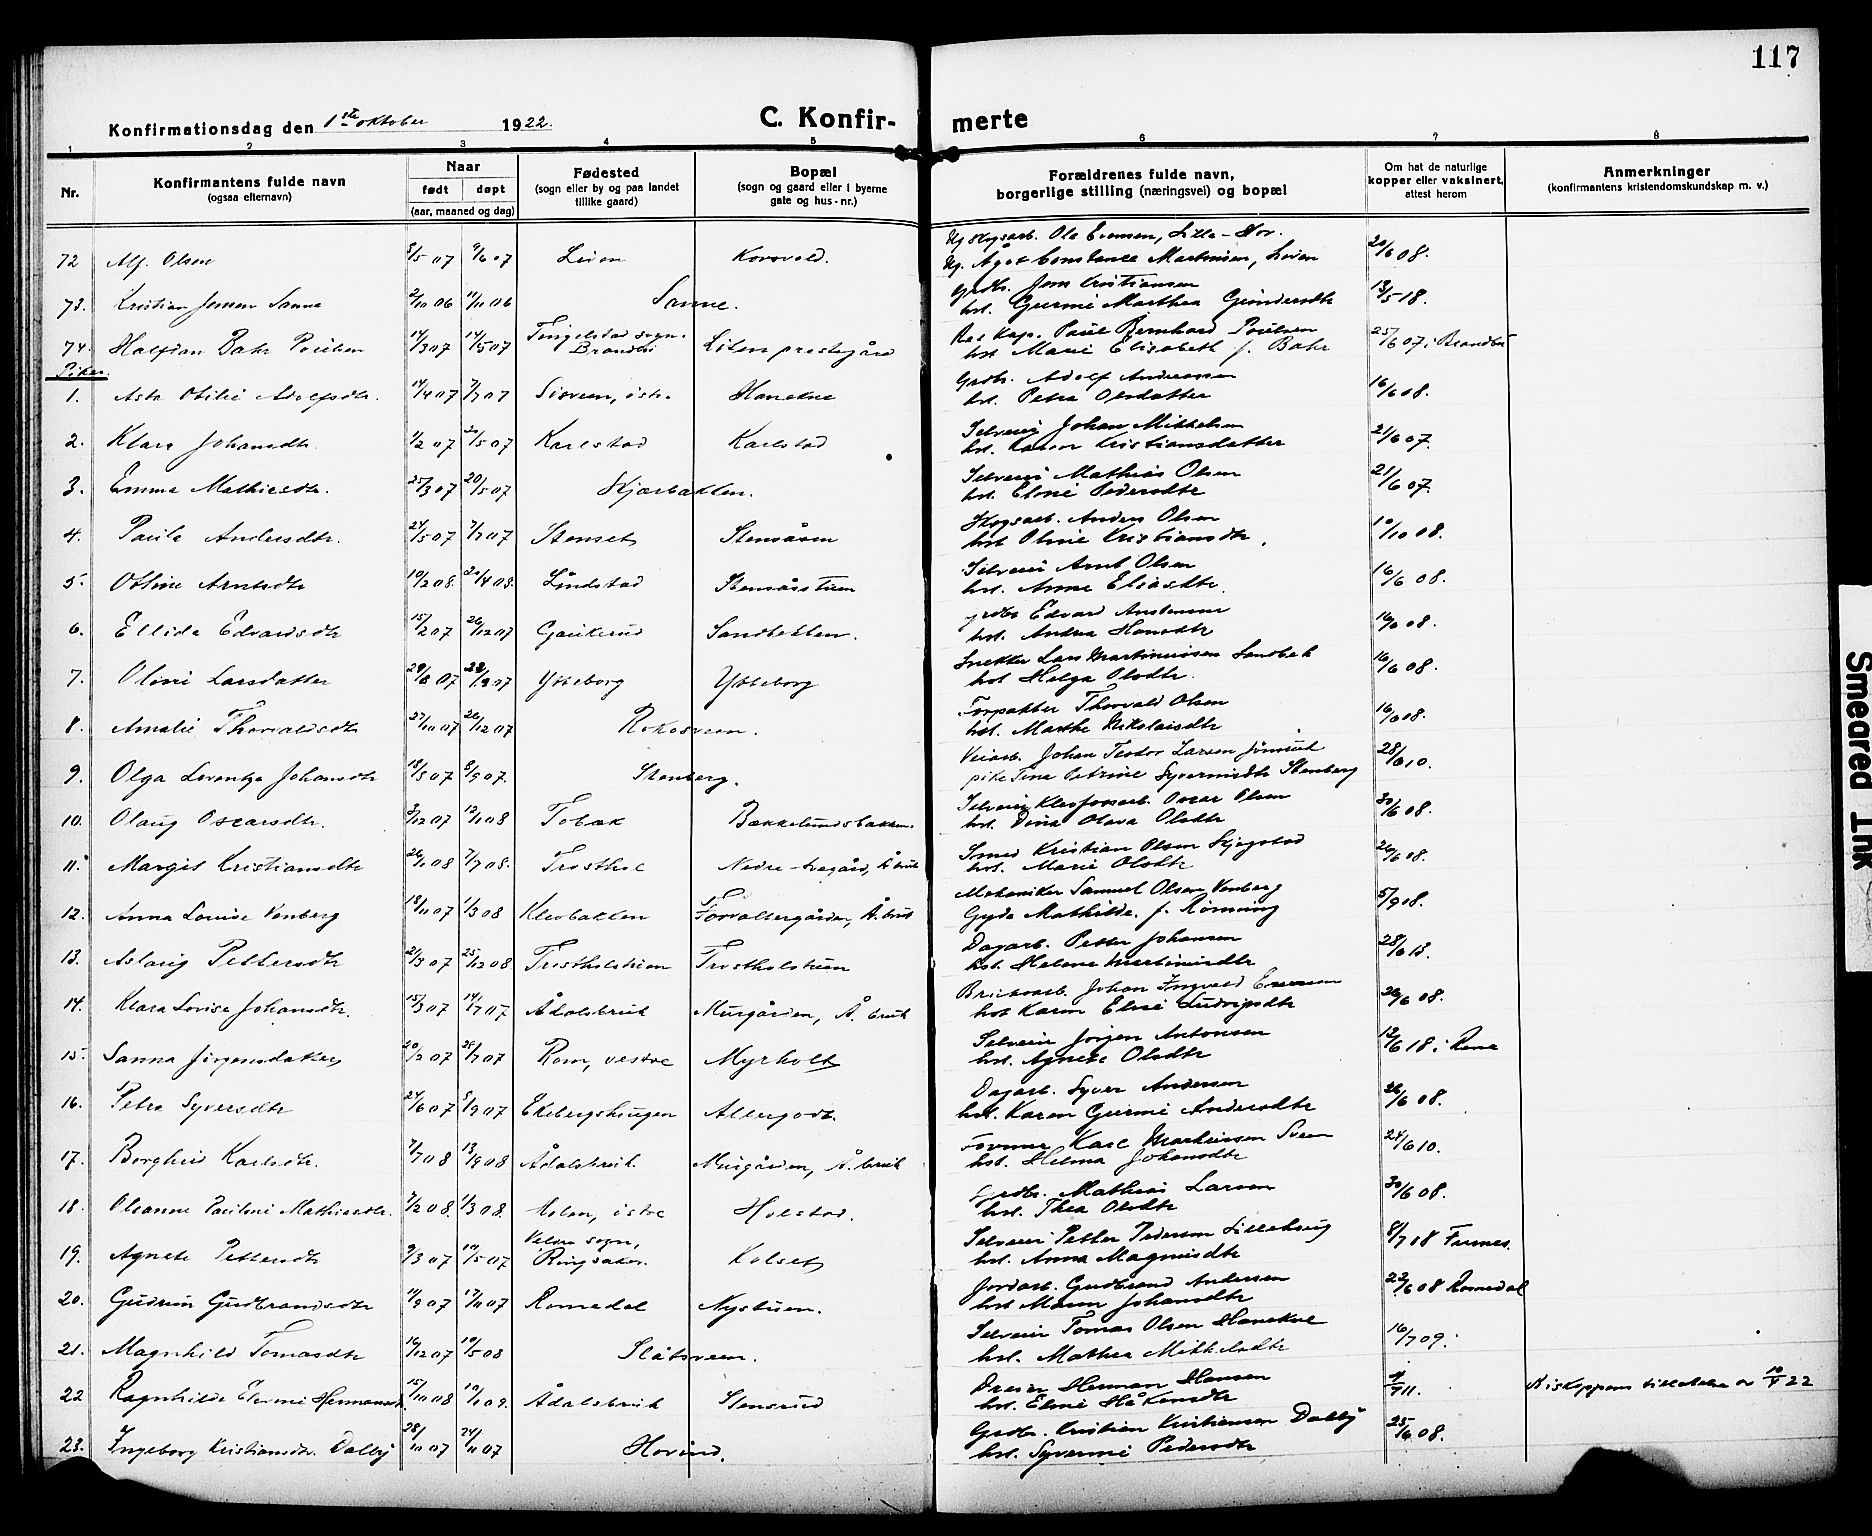 117
Konfirmationsdag den 1ste oktober 1922. C. Konfir- merte
1 2 3 4 5 6 7 8
Nr. Konfirmantens fulde navn (ogsaa efternavn) Naar født døpt (aar, maaned og dag) Fødested (sogn eller by og paa landet tillike gaard) Bopæl (sogn og gaard eller i byerne gate og hus-nr.) Forældrenes fulde navn, borgerlige stilling (næringsvei) og bopæl Om hat de naturlige kopper eller vaksinert, attest herom Anmerkninger (konfirmantens kristendomskundskap m. v.)
72 Alf. Olsen 8/5 07 9/6 07 Løten Korsvold. Ug. skogsarb. Ole Evensen, Lille-Hov.
Ug. Ågot Constance Martinsen, Løten 20/6 08.
73. Kristian Jensen Sanne 2/10 06 11/11 06 Sanne. Grdbr. Jens Kristiansen
hst. Gurine Marthea Gundersdtr 13/5 18.
74. Halfdan Bahr Poulsen 14/3 07 14/5 07 Tingelstad sogn. Brandbu Løten prestegård Res. Kap. Paul Bernhard Poulsen
hst. Marie Elisabeth f. Bahr 25/6 07 i Brandbu
Piker.
1. Asta Otilie Adolfsdtr. 14/4 07 7/7 07 Sisveen, østr. Hanekne Grdbr. Adolf Andreassen
hst. Petra Olsdatter 16/6 08.
2. Klara Johansdtr. 1/2 07 20/5 07 Karlstad Karlstad Selveier Johan Mikkelsen
hst. Karen Kristiansdatter 21/6 07.
3. Emma Mathiesdtr. 25/3 07 20/5 07 Skjærbakken. Selveier Mathias Olsen
hst. Eline Pedersdtr 21/6 07.
4. Paula Andersdtr. 24/5 07 7/7 07 Stenset Stensåsen Skogsarb. Anders Olsen
hst Oline Kristiansdtr. 10/10 08.
5. Otline Arntsdtr 10/2 08. 20/4 08. Lundstad Stensåsstuen Selveier Arnt Olsen
hst. Anne Eliasdtr. 16/6 08.
6. Ellida Edvardsdtr 15/2 07 26/12 07 Gaukerud Sandbakken. Grdbr Edvard Andersen
hst. Andrea Hansdtr 16/6 08.
7. Oline Larsdatter 29/6 07 22/9 07 Ytteborg Ytteborg Snekker Lars Martiniusen Sandbek
hst Helga Olsdtr. 16/6 08.
8. Amalie Thorvaldsdtr 27/10 07 26/12 07 Rokosveen. Forpakter Thorvald Olsen
hst. Marthe Nikolaisdtr 16/6 08.
9. Olga Lorentza Johansdtr 18/5 07 8/9 07. Stenberg. Veiarb. Johan Teodor Larsen
pike Tina Petrine Syversdtr Stenberg 28/6 10.
10. Olaug Oscarsdtr. 3/12 07 12/1 08 Tobæk Bækkelundsbakken. Selveier Oscar Olsen
hst. Dina Olava Olsdtr 30/6 08.
11. Margit Kristiansdtr 26/1 08 7/7 08. Trosthol Nedre-, Å. bruk Smed Kristian Olsen Skjegstad
hst. Marie Olsdtr 26/6 08.
12. Anna Louise Venberg 18/11 07 1/3 08 Klevbakken Forvaltergården, Å. bruk Mekaniker Samuel Olsen Venberg
Gyda Mathilde f. Rønning 5/9 08.
13. Aslaug Pettersdtr 21/3 07 25/12 08 Trostholstuen Trostholstuen Dagarb. Petter Johansen
hst. Helene Martinusdtr 28/6 13.
14. Klara Lovise Johansdtr. 15/3 07 14/7 07 Ådalsbruk Murgården, Å. bruk Johan Ingvald
hst Karen Eline Ludvigsdtr 26/6 08.
15. Sanna Jørgensdatter 20/2 07 28/7 07 Rom, vestre Myrholt Selveier Jørgen Antonsen
hst. Agnete Olsdtr 12/6 18 i Rena
16. Petra Syversdtr 24/6 07 8/9 07 Ekebergshaugen Allergodt. Dagarb. Syver Andersen
hst. Karen Gurine Andersdtr 26/6 08.
17. Borghild Karlsdtr. 7/7 08 13/9 08 Ådalsbruk. Murgården, Å. bruk Former Karl Martinsen Sveen
hst. Helma Johansdtr 24/6 10.
18. Oleanne Pauline Mathiasdtr. 7/12 08. 1/3 08. Aolen, østre Holstad. Grdbr. Mathias Larsen
hst. Thea Olsdtr 30/6 08.
19. Agnete Pettersdtr 9/3 07 10/5 07 Veldre sogn, Ringsaker. Kolset Selveier Petter Pedersen Lillehaug
hst. Anna Magnusdtr 8/7 08 Furnes.
20. Gudrun Gudbrandsdtr 14/9 07 17/11 07 Romedal Nystuen. Jordarb. Gudbrand Andersen
hst Maren Johansdtr 22/6 08 Romedal
21. Magnhild Tomasdtr 16/12 07 10/5 08 Slåtsveen. Selveier Tomas Olsen Hanekne
hst. Mathea Mikkelsdtr 16/7 09.
22 Ragnhilde Elenie Hermansdtr. 15/10 08 10/1 09. Ådalsbruk Stensrud Dreier Herman Hansen
hst. Eline Håkensdtr 11. Biskoppens tillatelse av 22
23. Ingeborg Kristiansdtr. Dalby 28/10 07 24/11 07 Hovind. Grdbr. Kristian Kristiansen Dalby
hst. Syverine Pedersdtr 25/6 08.
Smeared Ink